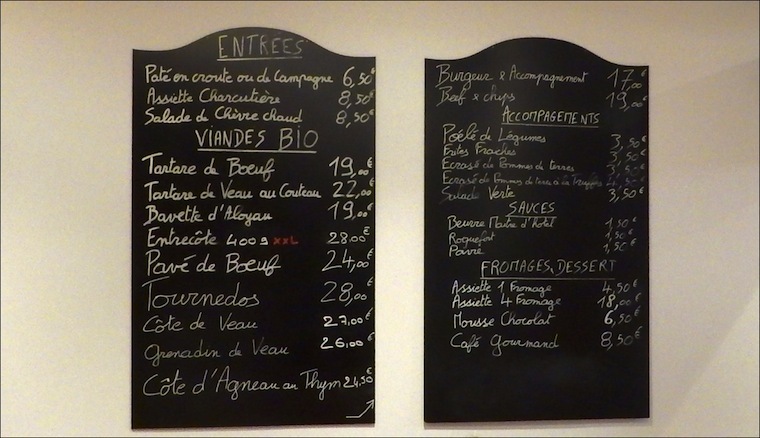 ENTREES
Paté en croute ou de Campagne 6,50€
Assiette Charcutière 8,50€
Salade de Chèvre chaud 8,50€
VIANDES BIO
Tartare de Boeuf 19,00€
Tartare de Veau au Couteau 22,00€
Bavette d'Aloyau 19,00€
Entrecôte 400g XXL 28,00€
Pavé de Boeuf 24,00€
Tournedos 28,00€
Côte de Veau 27,00€
Grenadin de Veau 26,00€
Côte d'Agneau au Thym 24,50€
Burgeur & Accompagnement 17,00€
Beef & chips 19,00€
ACCOMPAGEMENTS
Poêlé de Légumes 3,50€
Frites Fraches 3,50€
Ecrasé de Pommes de terres 3,50€
Ecrasé de Pommes de terre à la Truffe
Salade Verte 3,50€
SAUCES
Beurre Maitre d'Hotel 1,50€
Roquefort 1,50€
Poivre 1,50€
FROMAGES, DESSERT
Assiette 1 Fromage 4,50€
Assiette 4 Fromage 18,00€
Mousse Chocolat 6,50€
Café Gourmand 8,50€